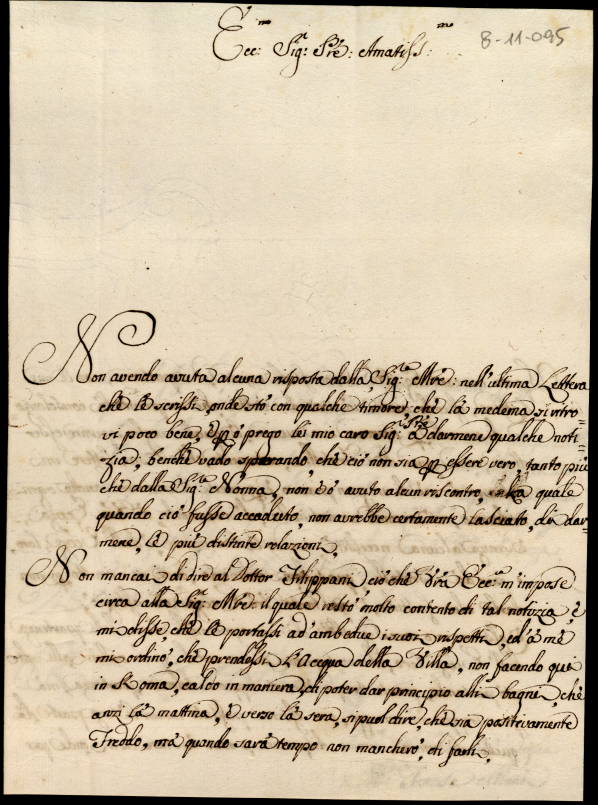 Ecc:mo Sig:r P̃re: Amatiss:mo
8-11-095
Non avendo avuta alcuna risposta dalla Sig:ra Mr̃e: nell'ultima Lettera
che le scrissi, onde stò con qualche timore, che la medema si ritro
vi poco bene, è però prego lei mio caro Sig:r P̃re à darmene qualche noti
zia; benche vado sperando che ciò non sia per essere vero, tanto più
che dalla Sig:ra Nonna, non è ò avuto alcun riscontro, la quale
quando ciò fusse accaduto, non avrebbe certamente lasciato, di dar=
mene, le più distinte relazioni.
Non mancai di dire al Dottor Filippani ciò che Vr̃a Ecc:a m'impose
circa alla Sig:ra Mr̃e: il quale restò molto contento di tal notizia, è
mi disse, che le portassi ad'ambedue i suoi rispetti, ed'à mè
mi ordinò, che prendessi l'Acqua della Villa, non facendo qui
in Roma, caldo in maniera, di poter dar principio alli bagni, che
anzi la mattina, è verso la sera, si puol dire, che sia positivamente
Freddo, mà quando sarà tempo non mancherò, di farli.